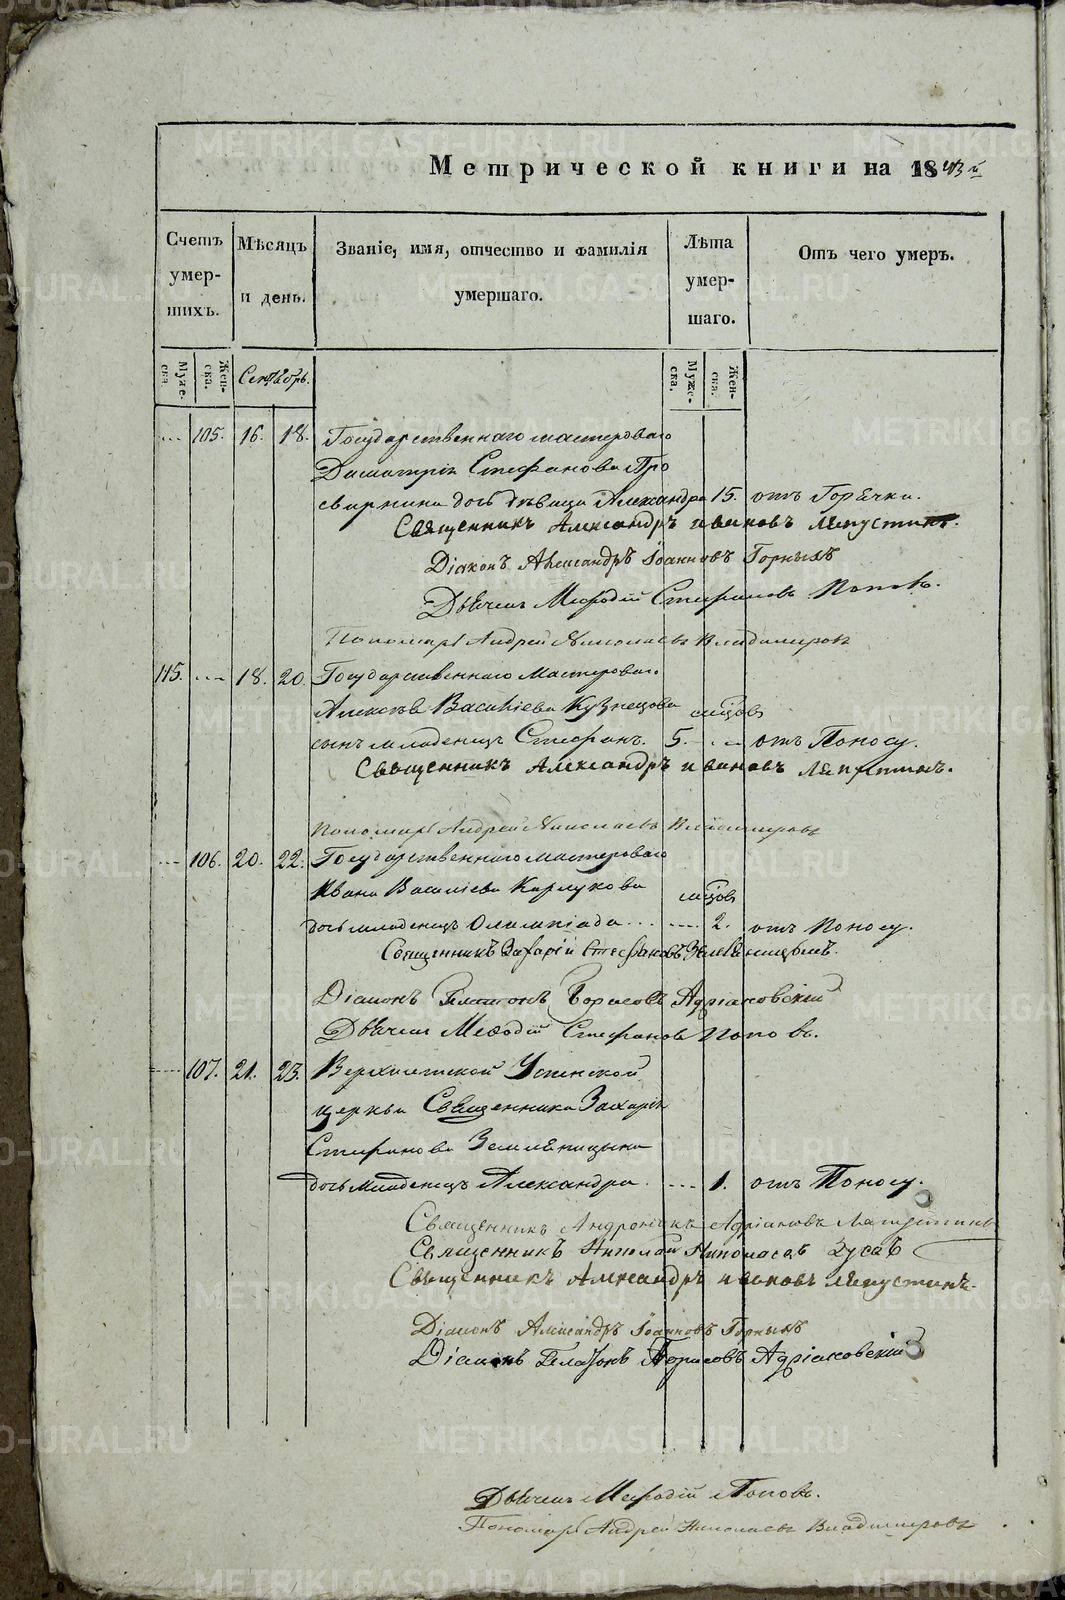 Метрической книги на 1843й
Счетъ умершихъ.
Мѣсяцъ и день.
Званіе, имя, отчество и фамилія умершаго.
Лѣта умершаго.
Отъ чего умеръ.
Муже-ска.
Жен-ска.
Сентябрь.
Муже-ска.
Жен-ска.
... 105. 16. 18. Государственнаго мастероваго
Димитрія Стефанова Про
сварнина дочь дѣвица Александра 15. отъ Горячки.
Священникъ Александръ Ивановъ Ляпустинъ.
Діаконъ Александръ Іоанновъ Горныхъ
Дьячекъ Мефодій Стефановъ Поповъ.
Пономарь Андрей Николаевъ Владимировъ
115. ... 18. 20. Государственнаго Мастероваго
Алексѣя Василіева Кузнецова мѣсяцовъ
сынъ младенецъ Стефанъ. 5. ... отъ Поносу.
Священникъ Александръ Ивановъ Ляпустинъ.
Пономарь Андрей Николаевъ Владимировъ
... 106. 20. 22. Государственнаго мастероваго
Ивана Василіева Карлукова мѣсяцовъ
дочь младенецъ Олимпіада ... ... 2. отъ Поносу.
Священникъ Захарій Стефановъ Земляницынъ.
Діаконъ Платонъ Борисовъ Адріановскій
Дьячекъ Мефодій Стефановъ Поповъ.
... 107. 21. 23. Верхисетской Успенской
церкви Священника Захарія
Стефанова Земляницына
дочь младенецъ Александра. ... 1. отъ Поносу.
Священникъ Андроникъ Адріановъ
Священникъ Николай Николаевъ Зусевъ
Священникъ Александръ Ивановъ Ляпустинъ.
Діаконъ Александръ Іоанновъ Горныхъ
Діаконъ Платонъ Борисовъ Адріановскій
Дьячекъ Мефодій Поповъ.
Пономарь Андрей Николаевъ Владимировъ
METRIKI.GASO-URAL.RU